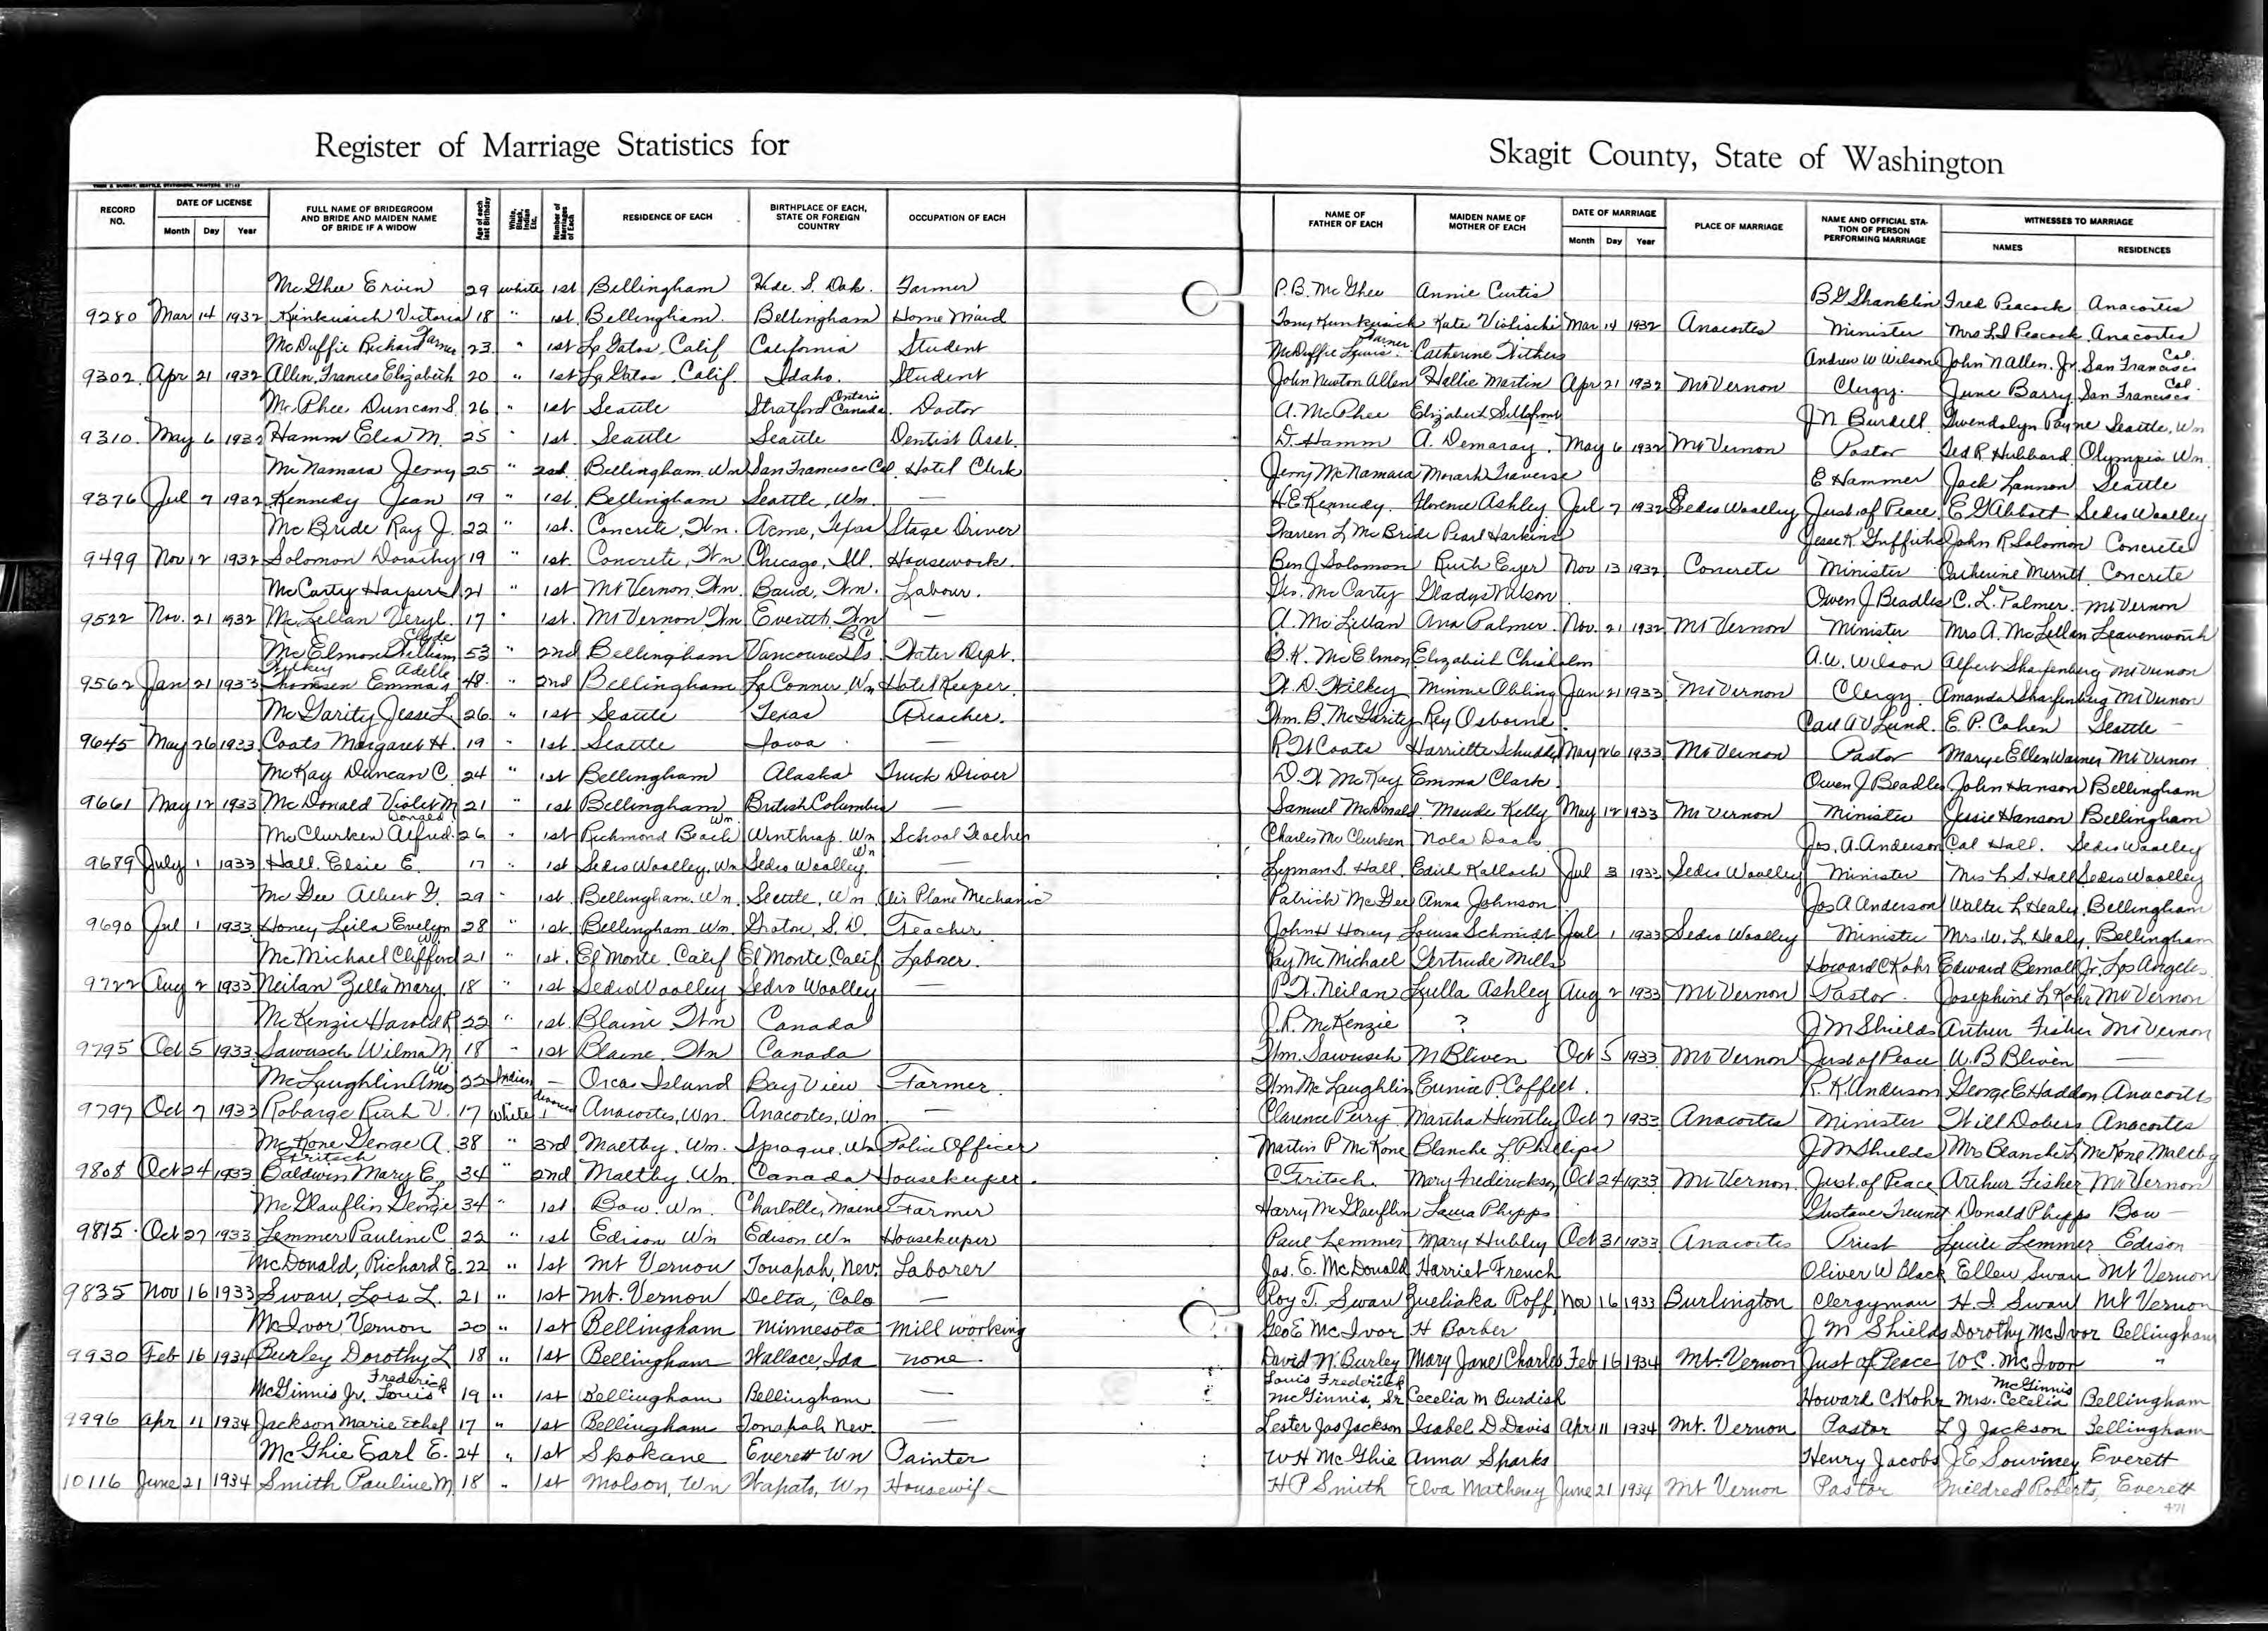 Register of Marriage Statistics for Skagit County, State of Washington
RECORD NO. DATE OF LICENSE Month Day Year FULL NAME OF BRIDEGROOM AND BRIDE AND MAIDEN NAME OF BRIDE IF A WIDOW Age of each last Birthday White, Black, Indian Etc. Number of Marriages of Each RESIDENCE OF EACH BIRTHPLACE OF EACH, STATE OR FOREIGN COUNTRY OCCUPATION OF EACH NAME OF FATHER OF EACH MAIDEN NAME OF MOTHER OF EACH DATE OF MARRIAGE Month Day Year PLACE OF MARRIAGE NAME AND OFFICIAL STATION OF PERSON PERFORMING MARRIAGE WITNESSES TO MARRIAGE NAMES RESIDENCES
McGhee Ervin 29 white 1st Bellingham S. Dak. Farmer P.B. McGhee Annie Curtis B G Shanklin Fred Peacock Anacortes
9280 Mar 14 1932 Victoria 18 " 1st Bellingham Bellingham Home Maid Tony Kate Mar 14 1932 Anacortes Minister Mrs Peacock Anacortes
McDuffie Richard Farner 23 " 1st Los Gatos, Calif California Student McDuffie Lewis Farner Catherine Withers Andrew W Wilson John N Allen, Jr. San Francisco Cal.
9302 Apr 21 1932 Allen, Frances Elizabeth 20 " 1st Los Gatos, Calif. Idaho. Student John Newton Allen Hallie Martin Apr 21 1932 Mt Vernon Clergy. June Barry San Francisco Cal.
McPhee Duncan S. 26 " 1st Seattle Stratford Ontario Canada Doctor A. McPhee Elizabeth J. N. Burdell Gwendolyn Payne Seattle, Wn
9310 May 6 1932 Hamm Elsa M. 25 " 1st. Seattle Seattle Dentist Asst. D. Hamm A. Demaray May 6 1932 Mt Vernon Pastor Ted R. Hubbard Olympia Wn.
McNamara Jerry 25 " 2nd Bellingham Wn San Francisco Cal. Hotel Clerk Jerry McNamara Traverse E Hammer Jack Lannon Seattle
9376 Jul 7 1932 Kennedy Jean 19 " 1st. Bellingham Seattle, Wn. — H.E. Kennedy Florence Ashley Jul 7 1932 Sedro Woolley Just. of Peace E G Abbott Sedro Woolley
McBride Ray J. 22 " 1st. Concrete, Wn. Acme, Texas Stage Driver Warren L McBride Pearl Harkins Jesse K. Griffiths John R Solomon Concrete
9499 Nov 12 1932 Solomon Dorothy 19 " 1st. Concrete, Wn Chicago, Ill. Housework. Ben J Solomon Ruth Eyer Nov 13 1932 Concrete Minister Catherine Merritt Concrete
McCarty Harper 21 " 1st Mt Vernon, Wn. Labour. Geo. McCarty Gladys Wilson Owen J Beadles C. L. Palmer Mt Vernon
9522 Nov. 21 1932 McLellan Veryl 17 " 1st. Mt Vernon Wn Everett, Wn — A. McLellan Ana Palmer Nov. 21 1932 Mt Vernon Minister Mrs A. McLellan Leavenworth
McElmon William Clyde 53 " 2nd Bellingham Vancouver Is. B.C. Water Dept. B. K. McElmon Elizabeth Chisholm A. W. Wilson Alfert Sharfenberg Mt Vernon
9562 Jan 21 1933 Wilkey Thomsen Emma Adelle 48 " 2nd Bellingham La Conner, Wn Hotel Keeper. W. D. Wilkey Minnie Obling Jan 21 1933 Mt Vernon Clergy Amanda Sharfenberg Mt Vernon
McGarity Jesse L. 26 " 1st Seattle Texas Preacher. Wm. B. McGarity Rey Osborne Carl A V Lund E. P. Cohen Seattle
9645 May 26 1933 Coats Margaret H. 19 " 1st. Seattle Iowa — R W Coats Harriette May 26 1933 Mt Vernon Pastor Ellen Warner Mt Vernon
McKay Duncan C. 24 " 1st Bellingham Alaska Truck Driver D. W McKay Emma Clark Owen J Beadles John Hanson Bellingham
9661 May 12 1933 McDonald Violet M 21 " 1st Bellingham British Columbia — Samuel McDonald Maude Kelly May 12 1933 Mt Vernon Minister Jessie Hanson Bellingham
McClurken Alfred Donald 26 " 1st Richmond Beach Wn. Winthrop, Wn School Teacher Charles McClurken Nola Doak Jos. A. Anderson Cal Hall Sedro Woolley
9689 July 1 1933 Hall, Elsie E. 17 " 1st Sedro Woolley, Wn Sedro Woolley Wn — Lyman S. Hall Edith Kalloch Jul 3 1933 Sedro Woolley Minister Mrs L. S. Hall Sedro Woolley
McGee Albert G. 29 " 1st Bellingham Wn. Seattle, Wn Air Plane Mechanic Patrick McGee Anna Johnson Jos A Anderson Walter L Healy Bellingham
9690 Jul 1 1933 Honey Leila Evelyn 28 " 1st. Bellingham Wn. Groton, S.D. Teacher John H Honey Louisa Schmidt Jul 1 1933 Sedro Woolley Minister Mrs. W. L. Healy Bellingham
McMichael Clifford W 21 " 1st. El Monte, Calif El Monte, Calif Laborer. Ray McMichael Gertrude Mills Howard C Kohr Edward Bemall Jr. Los Angeles
9722 Aug 2 1933 Neilan Zella Mary 18 " 1st Sedro Woolley Sedro Woolley — P. W. Neilan Luella Ashley Aug 2 1933 Mt Vernon Pastor Josephine L Kohr Mt Vernon
McKenzie Harold R 22 " 1st Blaine Wn Canada J. R. McKenzie ? J M Shields Arthur Fisher Mt Vernon
9795 Oct 5 1933 Sawusch Wilma M. 18 " 1st Blaine, Wn Canada Wm. Sawusch M Bliven Oct 5 1933 Mt Vernon Just of Peace W. B Bliven —
McLaughlin Amos W 22 Indian — Orcas Island Bay View Farmer Wm McLaughlin Eunice P. Coffelt R. K. Anderson George E Haddon Anacortes
9797 Oct 7 1933 Robarge Ruth V. 17 White divorced 1 Anacortes, Wn. Anacortes, Wn — Clarence Perry Martha Huntley Oct 7 1933 Anacortes Minister Will Dobers Anacortes
McKone George A. 38 " 3rd Maltby, Wn. Sprague, Wn Police Officer Martin P McKone Blanche L. Phillips J M Shields Mrs Blanche L McKone Maltby
9808 Oct 24 1933 Fritsch Baldwin Mary E. 34 " 2nd Maltby Wn. Canada Housekeeper. C Fritsch. Mary Frederickson Oct 24 1933 Mt Vernon Just. of Peace Arthur Fisher Mt Vernon
McGlauflin George 34 " 1st Bow, Wn. Charlotte, Maine Farmer Harry McGlauflin Laura Phipps Gustave Treunet Donald Phipps Bow
9815 Oct 27 1933 Lemmer Pauline C. 22 " 1st Edison Wn Edison, Wn Housekeeper Paul Lemmer Mary Hubley Oct 31 1933 Anacortes Priest Lucile Lemmer Edison
McDonald, Richard E. 22 " 1st Mt Vernon Tonapah, Nev. Laborer Jas. E. McDonald Harriet French Oliver W Black Ellen Swan Mt Vernon
9835 Nov 16 1933 Swan, Lois L. 21 " 1st Mt. Vernon Delta, Colo — Roy T. Swan Zueliaka Roff Nov 16 1933 Burlington Clergyman H. I. Swan Mt Vernon
McIvor, Vernon 20 " 1st Bellingham Minnesota Mill working Geo E McIvor H Barber J M Shields Dorothy McIvor Bellingham
9930 Feb 16 1934 Burley Dorothy L 18 " 1st Bellingham Wallace, Ida none. David N. Burley Mary Jane Charles Feb 16 1934 Mt. Vernon Just of Peace W C. McIvor "
McGinnis Jr. Louis Frederick 19 " 1st Bellingham Bellingham — Louis Frederick McGinnis, Sr Cecelia M Burdick Howard C. Kohr Mrs. Cecelia McGinnis Bellingham
9996 Apr 11 1934 Jackson Marie Ethel 17 " 1st Bellingham Tonapah Nev. — Lester Jas Jackson Isabel D Davis Apr 11 1934 Mt. Vernon Pastor L J Jackson Bellingham
McGhie Earl E. 24 " 1st Spokane Everett Wn Painter W H McGhie Anna Sparks Henry Jacobs J E Souvirey Everett
10116 June 21 1934 Smith Pauline M 18 " 1st Molson, Wn Wapato, Wn Housewife H P Smith Elva Matheny June 21 1934 Mt Vernon Pastor Mildred Roberts, Everett
471